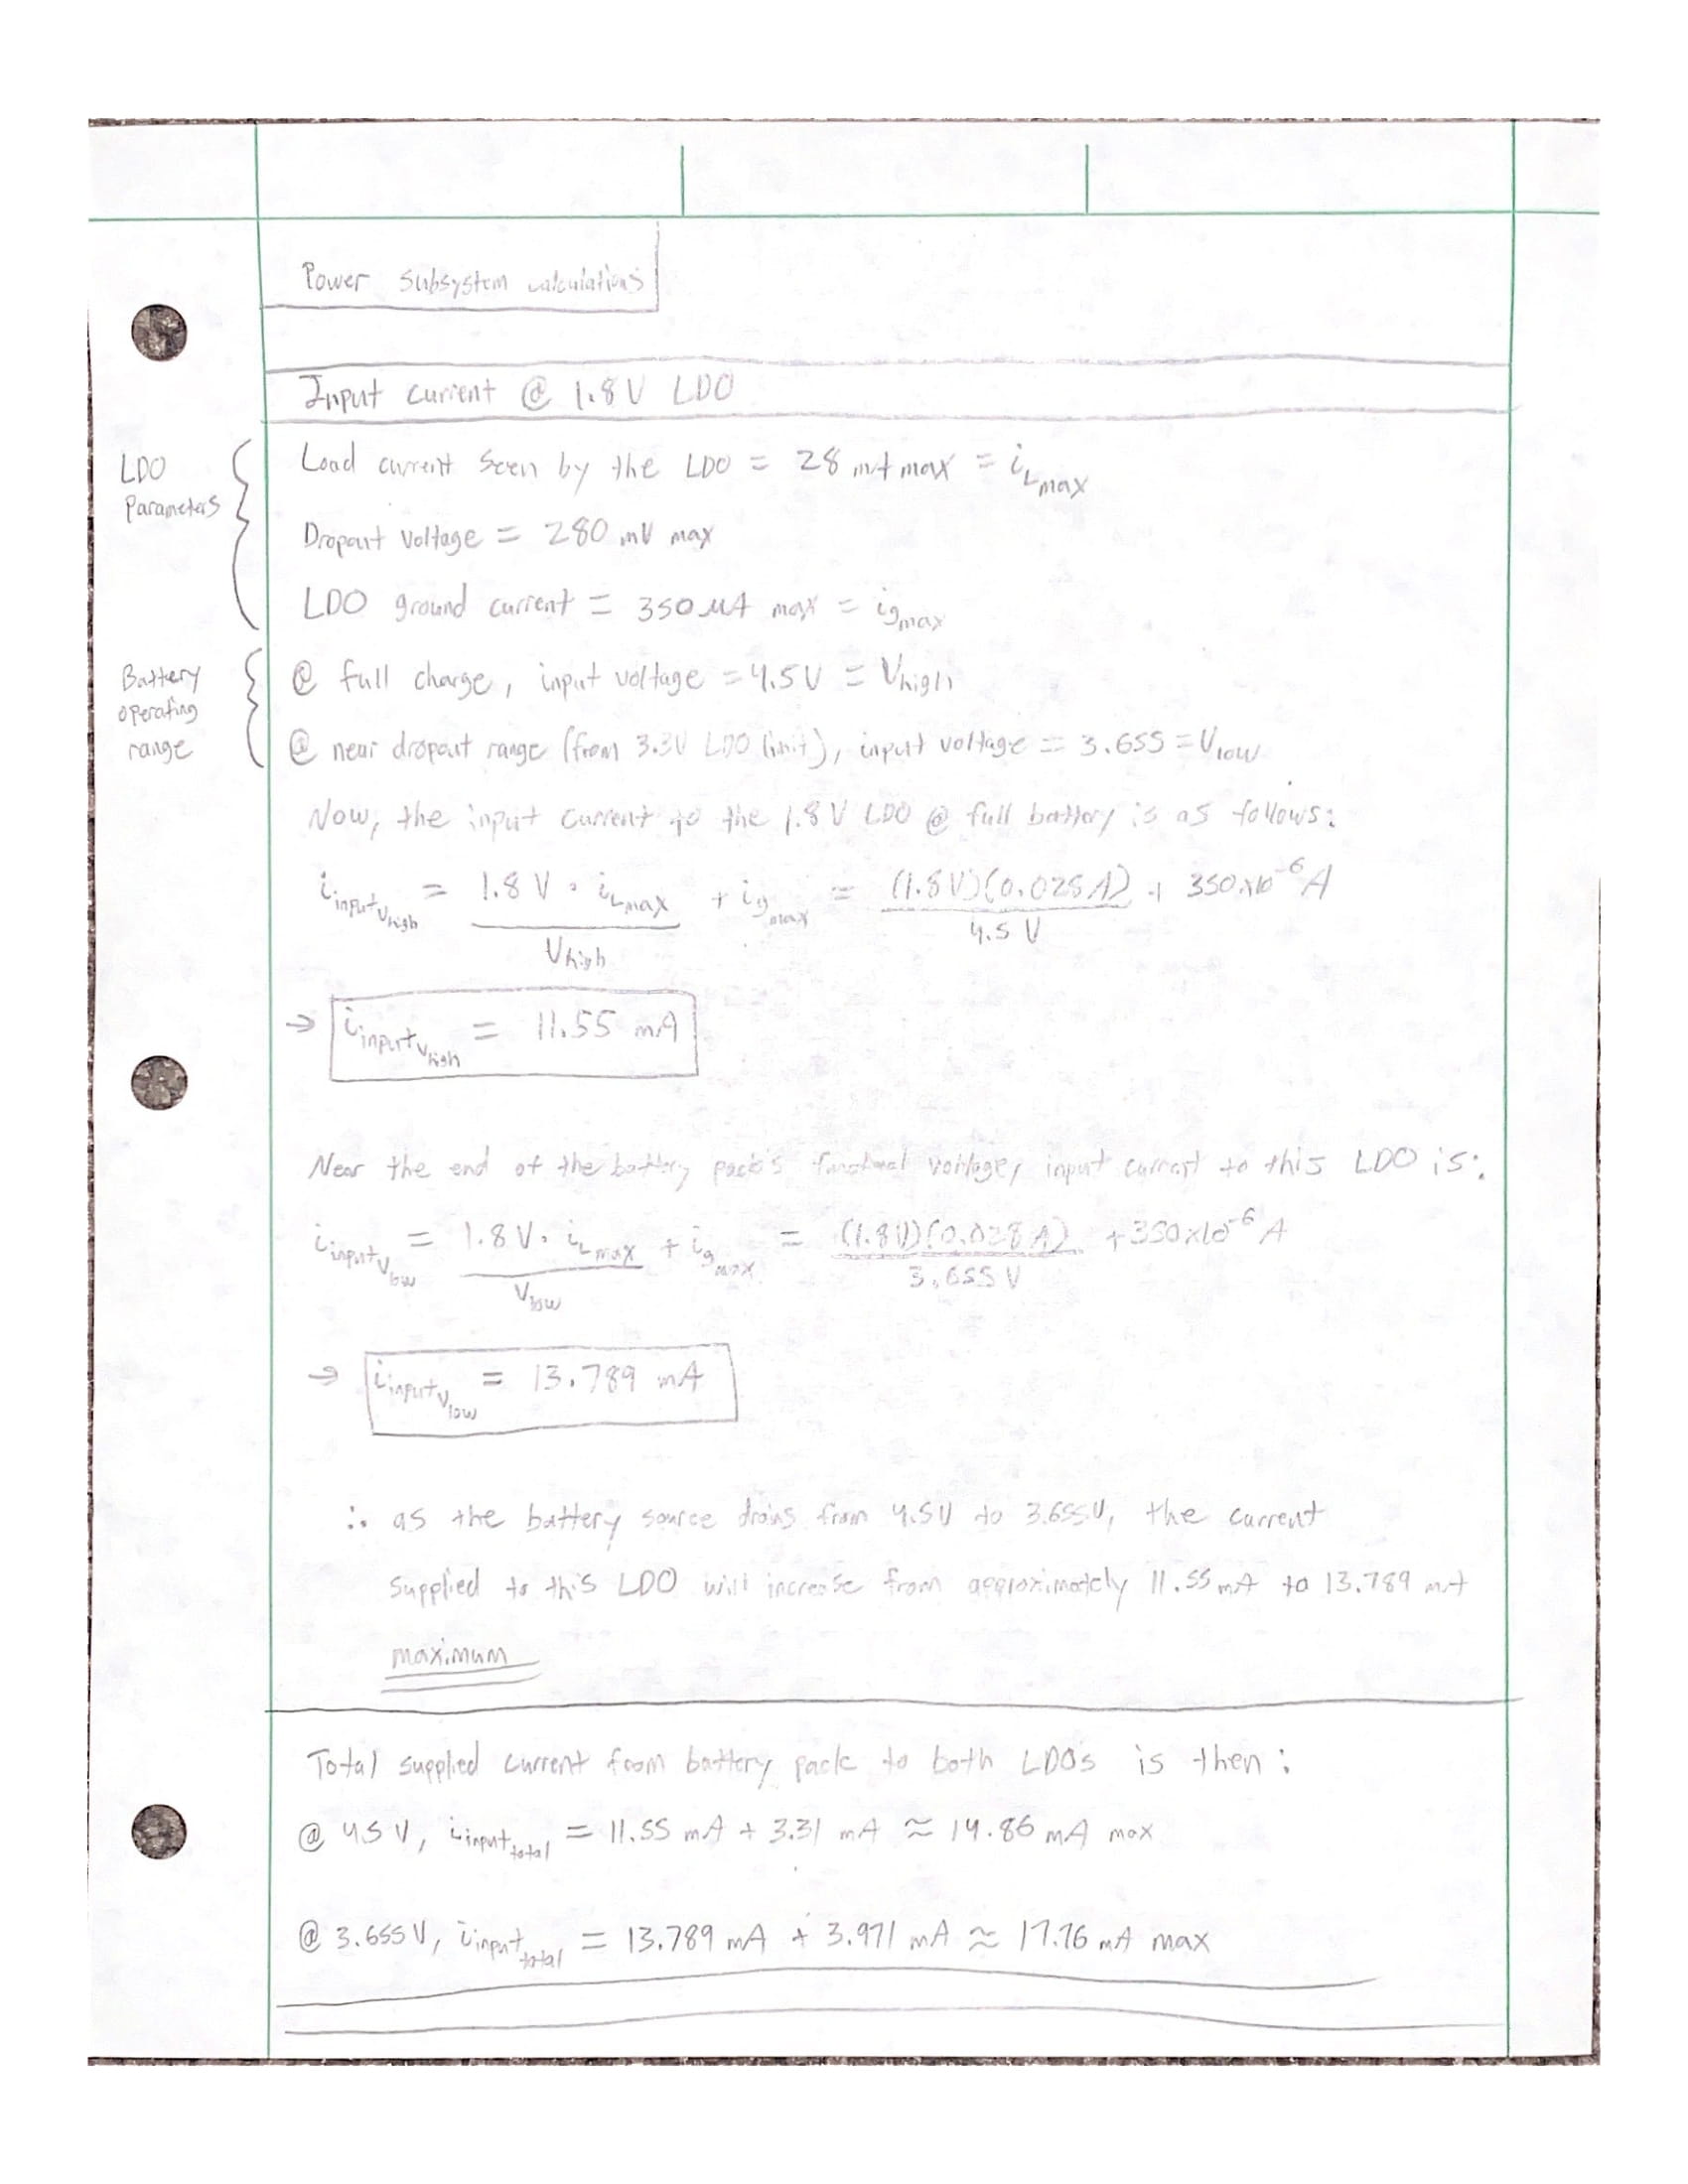 Power subsystem calculations
Input current @ 1.8 V LDO
LDO Parameters
Load current seen by the LDO = 28 mA max = i_Lmax
Dropout voltage = 280 mV max
LDO ground current = 350 uA max = i_gmax
Battery operating range
@ full charge, input voltage = 4.5V = Vhigh
@ near dropout range (from 3.3V LDO limit), input voltage = 3.655 = Vlow
Now, the input current to the 1.8 V LDO @ full battery is as follows:
i_input_Vhigh = 1.8 V · i_Lmax / Vhigh + i_gmax = (1.8 V)(0.028 A) / 4.5 V + 350x10^-6 A
→ i_input_Vhigh = 11.55 mA
Near the end of the battery pack's functional voltage, input current to this LDO is:
i_input_Vlow = 1.8 V · i_Lmax / Vlow + i_gmax = (1.8V)(0.028 A) / 3.655 V + 350x10^-6 A
→ i_input_Vlow = 13.789 mA
∴ as the battery source drains from 4.5V to 3.655V, the current
supplied to this LDO will increase from approximately 11.55 mA to 13.789 mA
maximum
Total supplied current from battery pack to both LDOs is then:
@ 4.5 V, i_input_total = 11.55 mA + 3.31 mA ≈ 14.86 mA max
@ 3.655 V, i_input_total = 13.789 mA + 3.971 mA ≈ 17.76 mA max